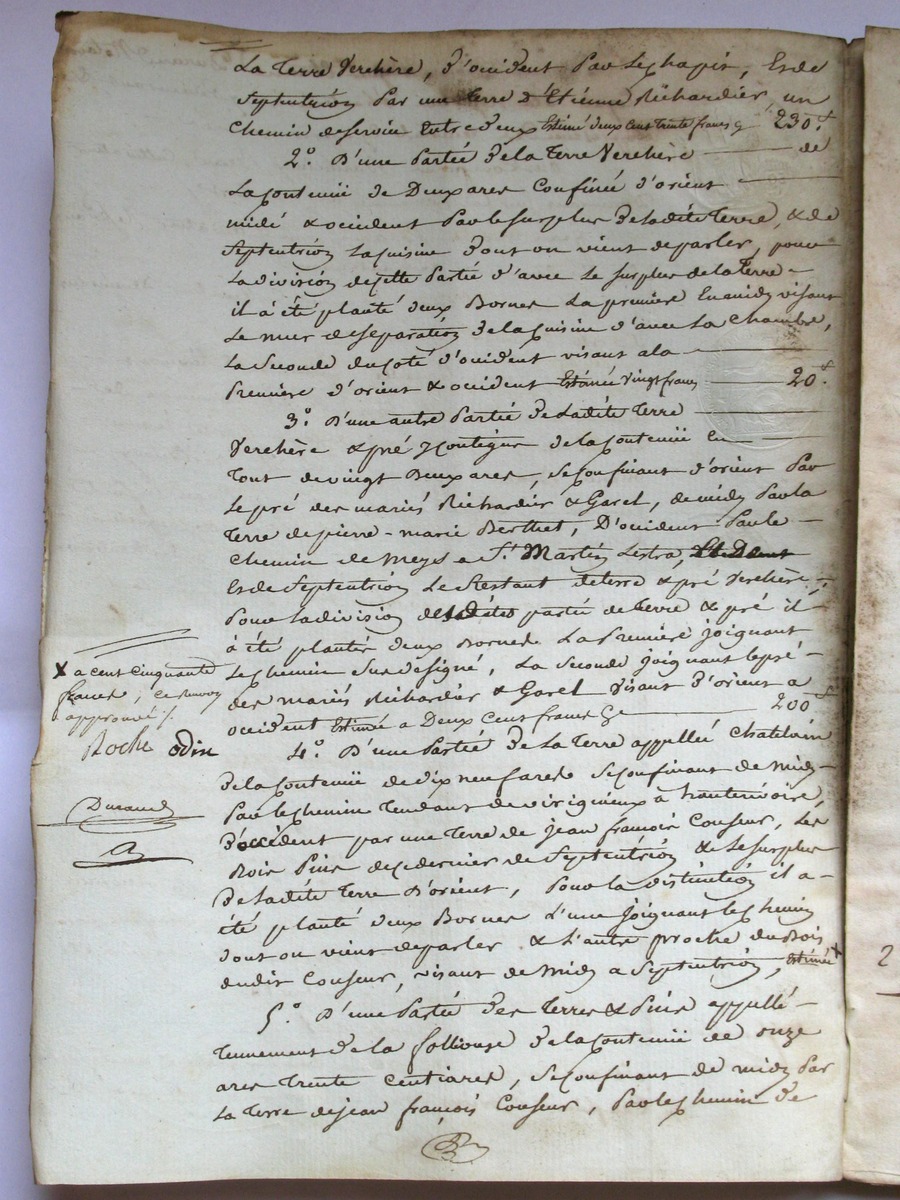 La terre verchère, d'occident par le chapit, Et de
Septentrion par une terre d'Etienne Richardier, un
chemin de servin Entre deux Estimé deux cent trente francs cy 230.f
2.o D'une Partie de la terre Verchère — de
La Contenüe de Deux ares Confinée d'orient —
midi & occident Par le surplus de la dite terre, & de
Septentrion la cuisine dont on vient de parler, pour
La division de cette Partie d'avec Le surplus de la terre -
il a été planté deux Bornes La premiere En midi visant
Le mur de séparation de la cuisine d'avec La Chambre,
La seconde du coté d'occident visant a la —
Premiere d'orient & occident Estimée vingt francs — 20.f
3.o D'une autre Partie de la dite terre —
Verchère & pré y contigus de la Contenüe En —
tout de vingt deux ares, se confinant d'orient Par
Le pré des mariés Richardier & Garel, de midi Par la
terre de pierre-marie Berthet, D'occident Par le -
chemin de Meys a St. Martin Lestra,
Et de Septentrion Le Restant de terre & pré Verchère;
Pour la division de la dite partie de terre & pré il -
a été planté deux Bornes La Première joignant
Le chemin sus désigné, La seconde joignant le pré -
des mariés Richardier & Garel Visant d'orient a
occident Estimée a Deux cent francs Cy — 200 f
4.o D'une Partie de La terre appellée Chatelain
de la Contenüe de dix neuf ares Se confinant de midi -
Par le chemin tendant de virigneux à hauterivoire,
D'occident par une terre de jean françois Couseur, Les
Bois Pins de ce dernier de Septentrion & Le surplus
De la dite terre D'orient, Pour la distinction il a -
été planté deux Bornes L'une joignant le chemin
dont on vient de parler & L'autre proche du Bois
du dit Couseur, visant de Midi a Septentrion, Estimée x
5.o D'une Partie des terres & Pins appellé -
tennement de la follouse de la Contenüe de onze
ares trente centiares, Se confinant de midi Par
La terre de jean françois Couseur, Par le chemin de
x a cent cinquante
francs, ce renvoy
approuvé /.
Roche odin
Durand
2